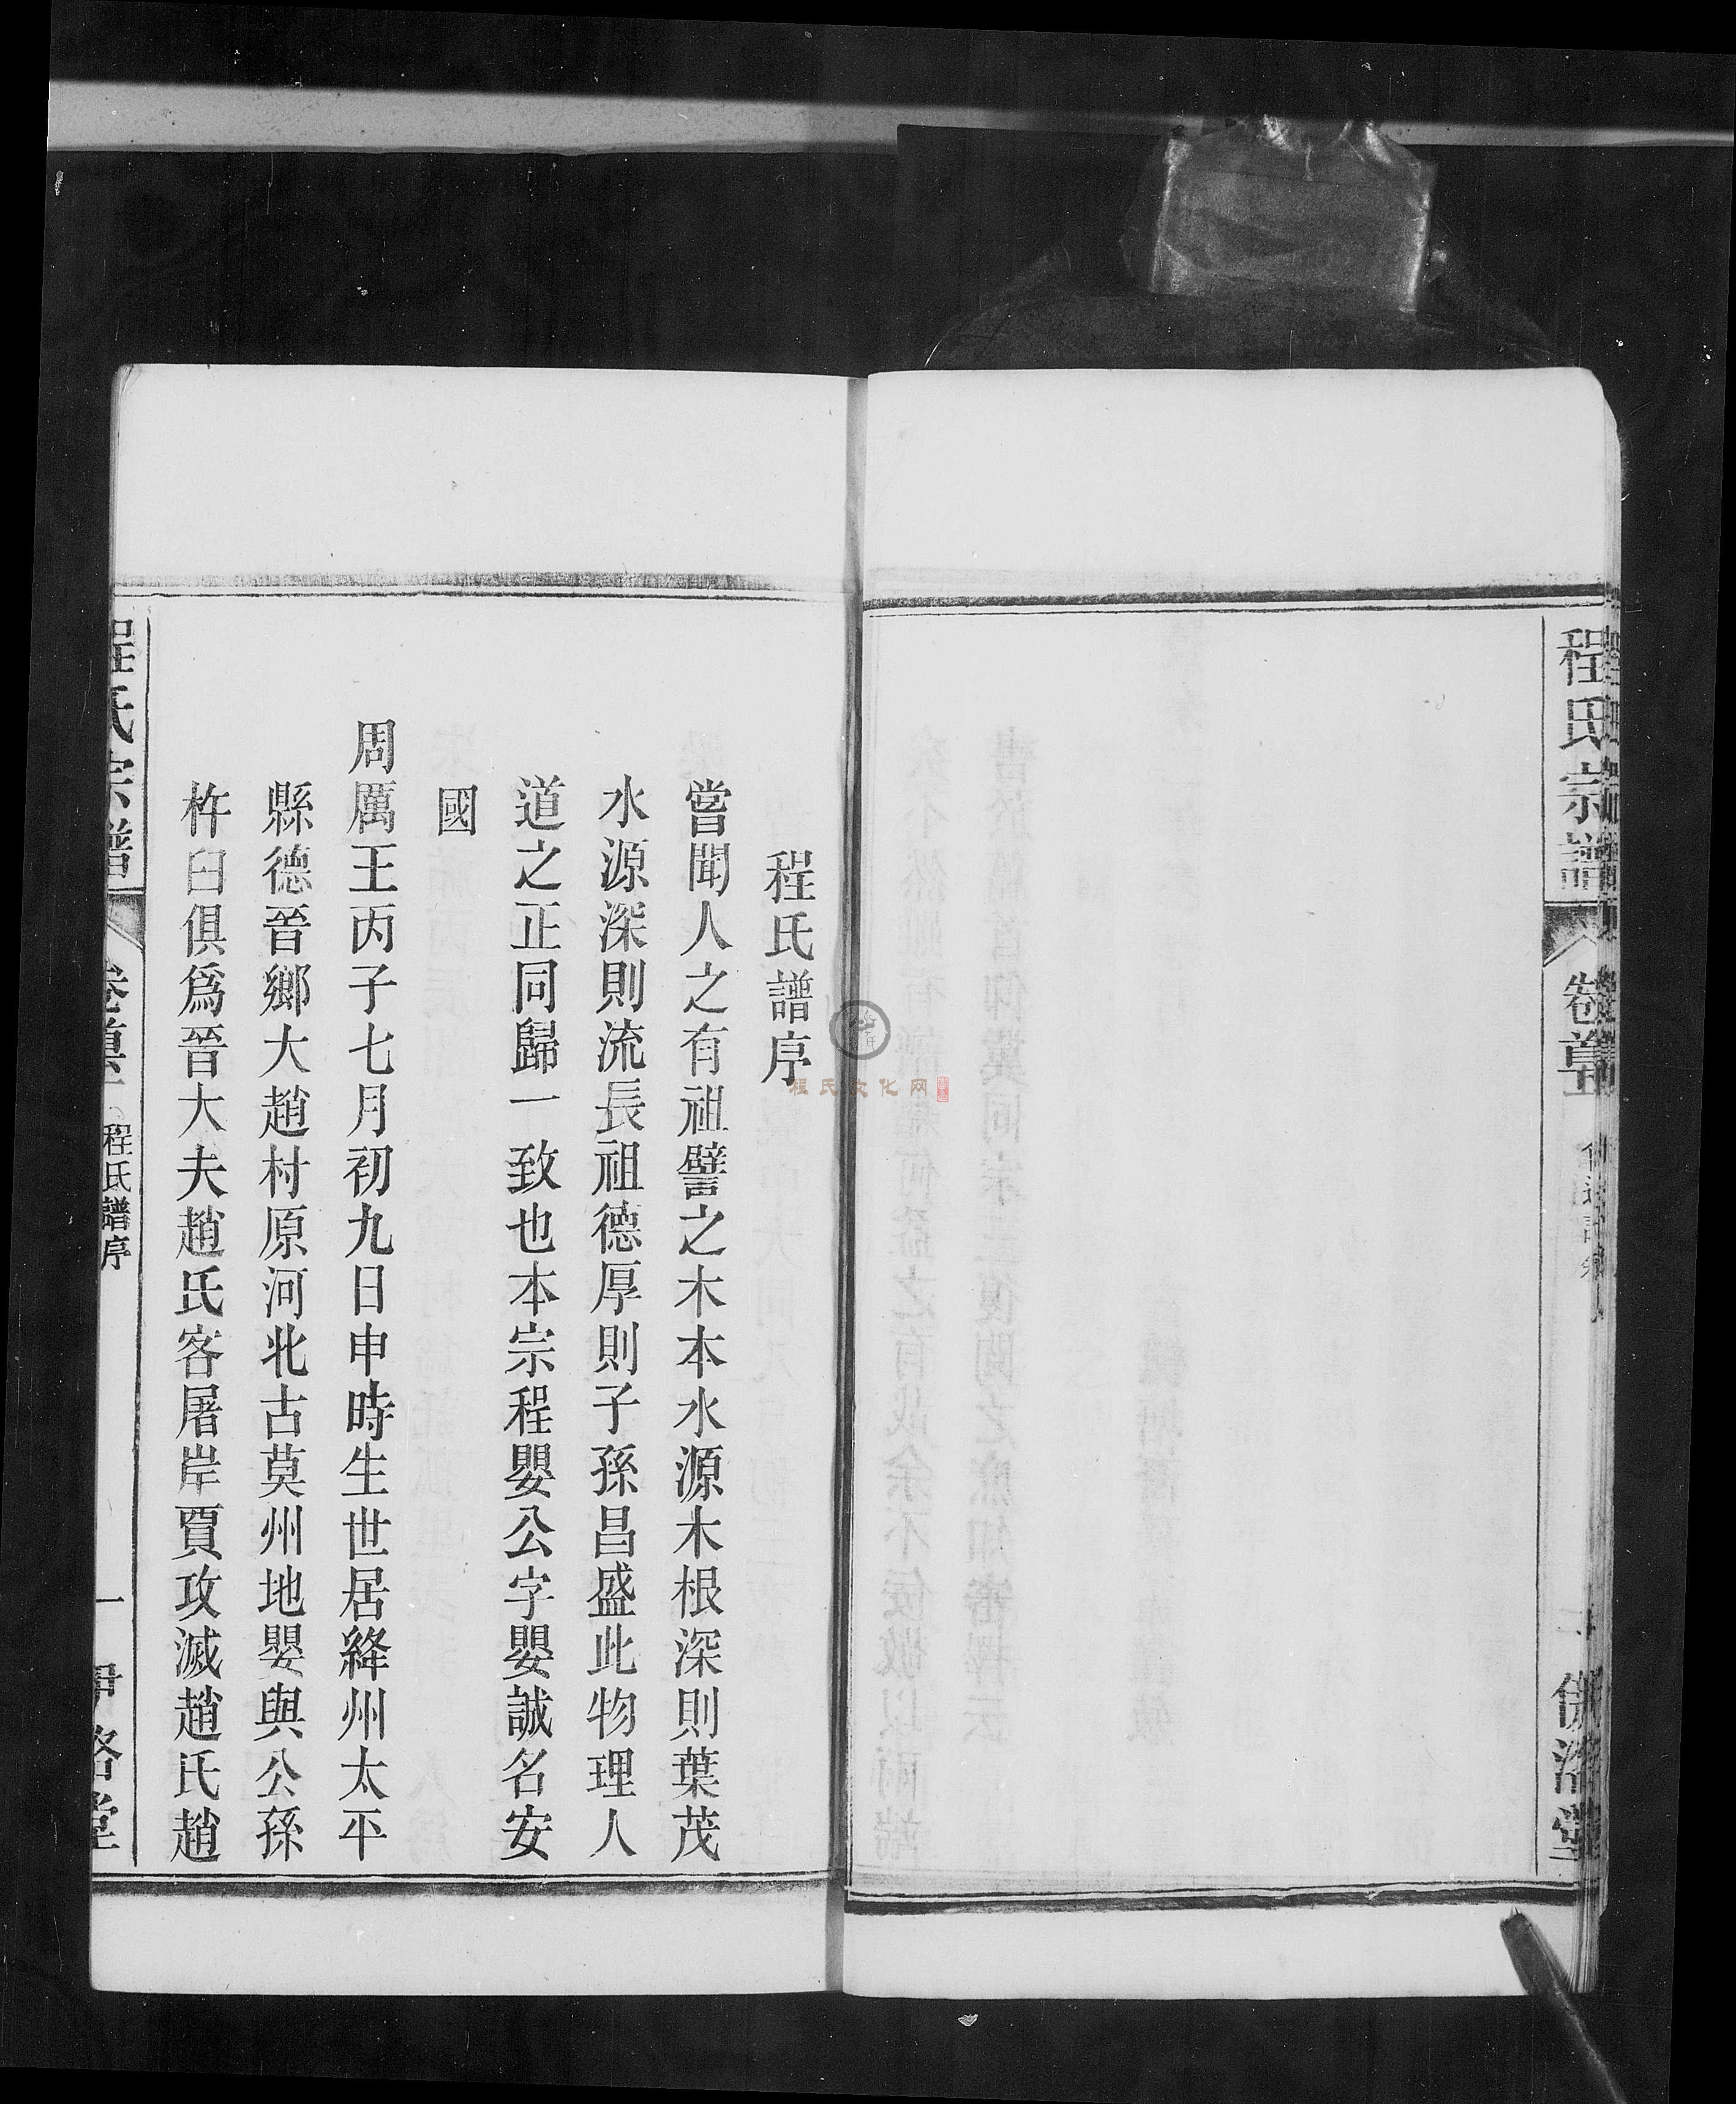 程氏宗譜
卷首
二
堂
程氏譜序
嘗聞人之有祖譬之木本水源木根深則葉茂
水源深則流長祖德厚則子孫昌盛此物理人
道之正同歸一致也本宗程嬰公字嬰誠名安
國
周厲王丙子七月初九日申時生世居絳州太平
縣德晉鄉大趙村原河北古莫州地嬰與公孫
杵臼俱爲晉大夫趙氏客屠岸賈攻滅趙氏趙
程氏宗譜
卷首
程氏譜序
一
伊洛堂
程氏文化网